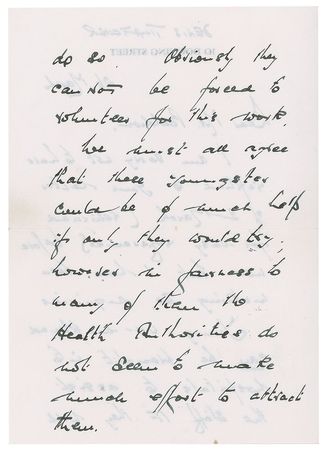 do so. Obviously they
cannot be forced to
volunteer for this work.
We must all agree
that these youngsters
could be of much help
if only they would try.
however in fairness to
many of them the
Health Authorities do
not seem to make
much effort to attract
them.